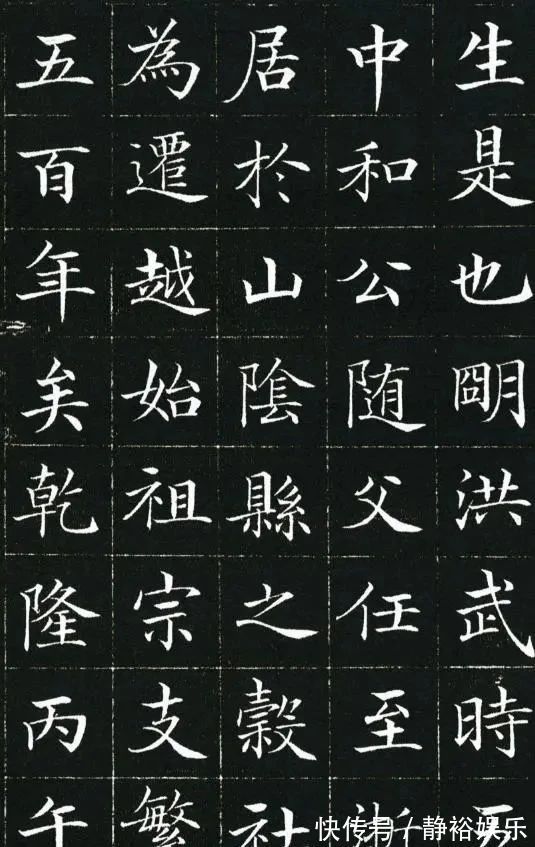 生是也朙洪武時
中和公随父任至浙
居於山陰縣之穀社
為遷越始祖宗支繁
五百年矣乾隆丙午
快传号/静裕娱乐